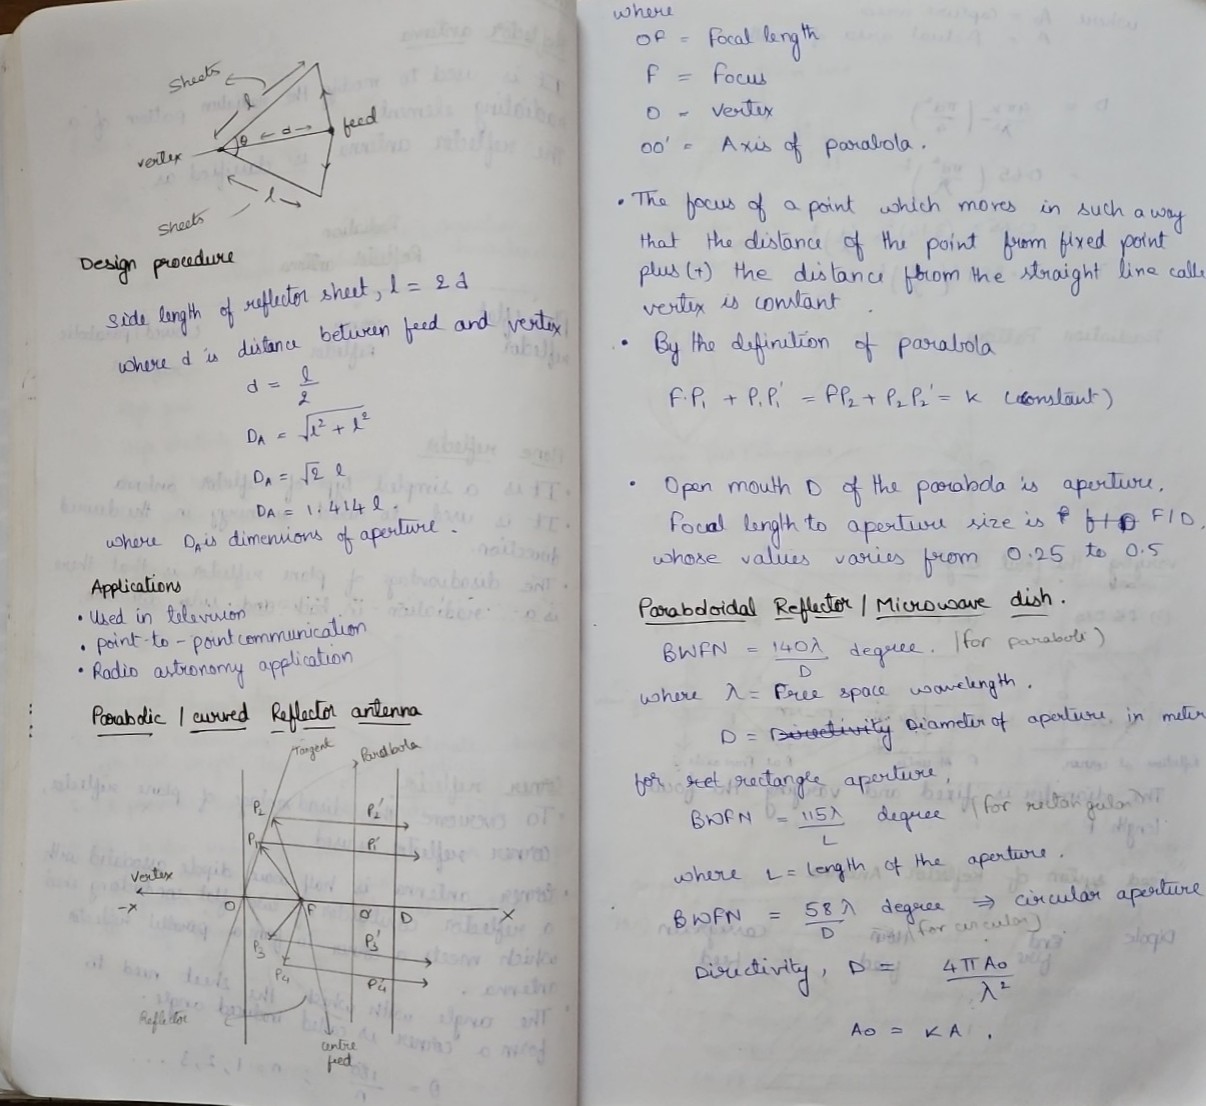 Sheets
l
θ
← d →
feed
vertex
l
Sheets
Design procedure
Side length of reflector sheet, l = 2d
where d is distance between feed and vertex
d = l/2
DA = √l² + l²
DA = √2 l
DA = 1.414 l.
where DA is dimensions of aperture.
Applications
• Used in television
• point-to-point communication
• Radio astronomy application
Parabolic / curved Reflector antenna
Tangent
Parabola
P2
P2'
P1
P1'
Vertex
-X
O
F
O'
D
X
P3
P3'
P4
P4'
Reflector
centre
feed
where
OF = Focal length
F = Focus
O - vertex
OO' = Axis of parabola.
• The focus of a point which moves in such a way
that the distance of the point from fixed point
plus (+) the distance from the straight line calle
vertex is constant.
• By the definition of parabola
F.P1 + P1P1' = PP2 + P2P2' = K (constant)
• Open mouth D of the parabola is aperture.
Focal length to aperture size is F/D,
whose values varies from 0.25 to 0.5
Paraboloidal Reflector / Microwave dish.
BWFN = 140λ/D degree. (for paraboli)
where λ = Free space wavelength.
D = Directivity Diameter of aperture in meter
for rect rectangle aperture,
BWFN = 115λ/L degree (for rectangular
where L = length of the aperture.
BWFN = 58λ/D degree ⇒ circular aperture
(for circular)
Directivity, D = 4πAo/λ²
Ao = KA.